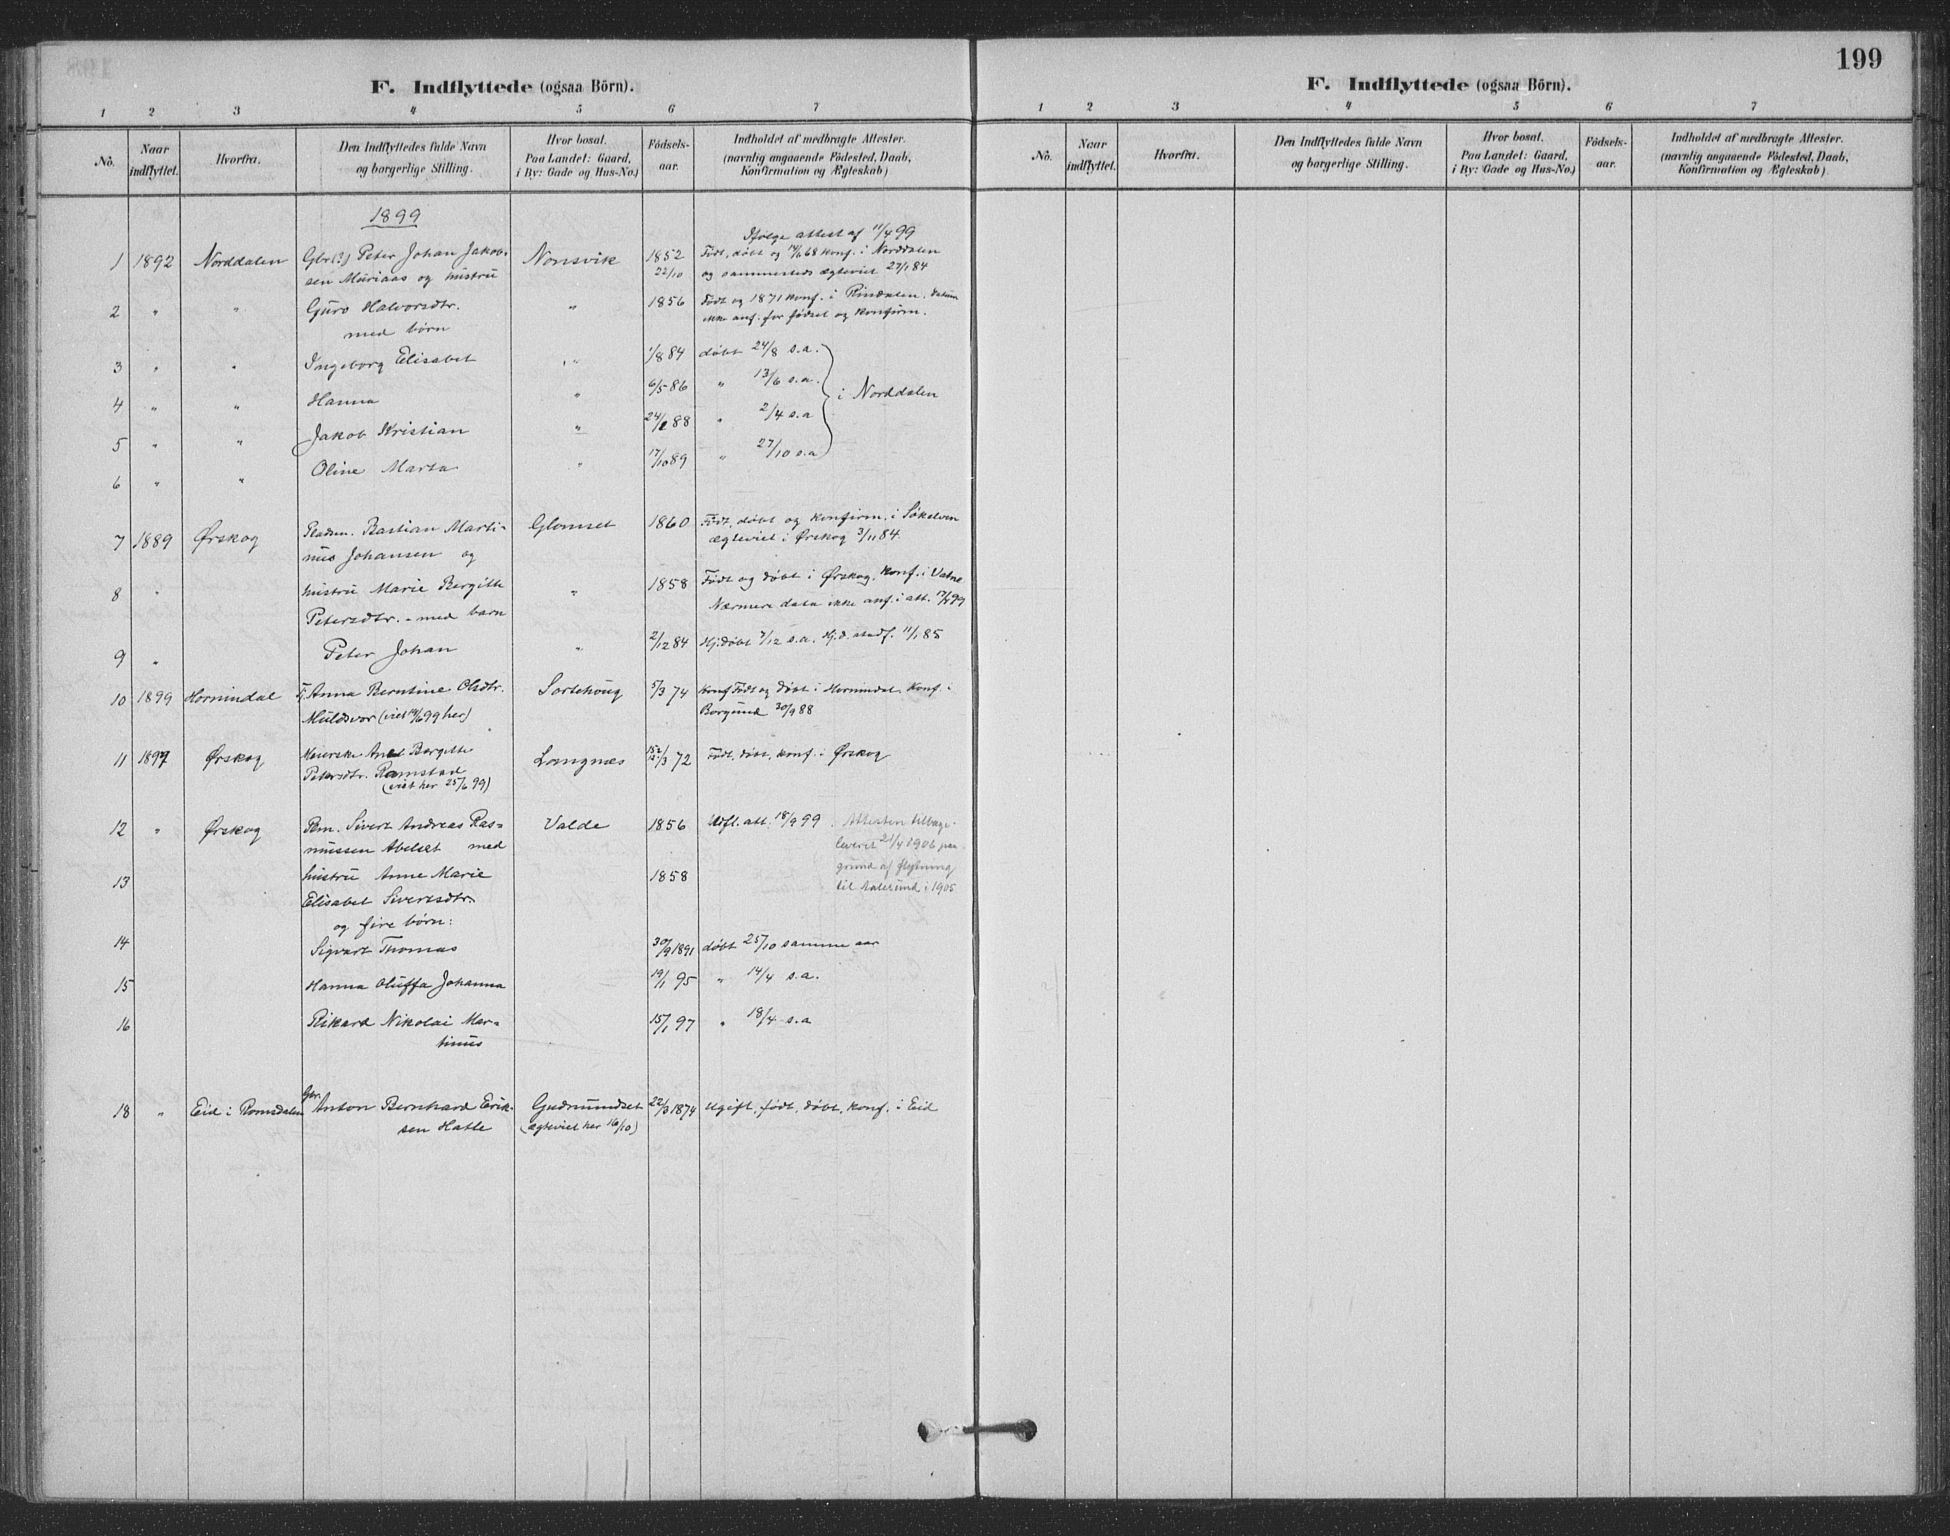 199
F. Indflyttede (ogsaa Börn).
1 2 3 4 5 6 7
No. Naar indflyttet. Hvorfra. Den Indflyttedes fulde Navn og borgerlige Stilling. Hvor bosat. Paa Landet: Gaard, i By: Gade og Hus-No.) Födsels-aar. Indholdet af medbragte Attester. (navnlig angaaende Födested, Daab, Konfirmation og Ægteskab)
1899
Ifølge attest af 11/4 99
1 1892 Norddalen Gbr(?) Peter Johan Jakob- Nonsvik 1852 Født, døbt og 14/6 68 konf. i Norddalen
sen Muriaas og hustru 22/10 og sammesteds ægteviet 27/1 84
2 " " Guro Halvorsdtr. " 1856 Født og 1871 konf. i Rindalen. Datum
med børn ikke anf. for fødsel og konfirm.
3 " " Ingeborg Elisabet " 1/8 84 døbt 24/8 s.a.
4 " " Hanna " 6/5 86 " 13/6 s.a. i Norddalen
5 " " Jakob Kristian " 24/2 88 " 2/4 s.a
6 " " Oline Marta " 17/10 89 " 27/10 s.a
7 1889 Ørskog Pladsm. Bastian Marti- Glomset 1860 Født, døbt og konfirm. i Søkelven
nus Johansen og ægteviet i Ørskog 3/11 84
8 " hustru Marie Bergitte " 1858 Født og døbt i Ørskog. Konf. i Vatne
Petersdtr. - med barn Nærmere data ikke anf. i att. 99
9 " Peter Johan " 2/12 84 Hj.døbt 7/12 s.a. Hj.d. stadf. 11/1 85
10 1899 Hornindal Anna Berntine Olsdtr. Sortehoug 5/3 74 Konf Født og døbt i Hornindal. Konf. i
Muldsvor (viet 99 her) Borgund 30/9 88
11 1897 Ørskog Meierske Ane Bergitte Langnæs 72 Født, døbt, konf. i Ørskog
Petersdtr. Ramstad
(viet her 25/6 99)
12 " Ørskog Pm. Sivert Andreas Ras- Valde 1856 Utfl. att. 18/9 99 Attesten tilbage-
mussen Abelset med leveret 21/4 1906 paa
13 hustru Anne Marie 1858 grund af flytning
Elisabet Siversdtr. til Aalesund i 1905
og fire børn:
14 Sigvart Thomas 30/9 1891 døbt 25/10 samme aar
15 Hanna Oluffa Johanna 19/1 95 " 14/4 s.a.
16 Rikard Nikolai Mar- 15/1 97 " 18/4 s.a
tinus
18 " Eid i Romsdalen Gbr. Anton Bernhard Erik- Gudmundset 22/3 1874 Ugift, født, døbt, konf. i Eid
sen Hatle (ægteviet her 16/10)
F. Indflyttede (ogsaa Börn).
1 2 3 4 5 6 7
No. Naar indflyttet. Hvorfra. Den Indflyttedes fulde Navn og borgerlige Stilling. Hvor bosat. Paa Landet: Gaard, i By: Gade og Hus-No.) Födsels-aar. Indholdet af medbragte Attester. (navnlig angaaende Födested, Daab, Konfirmation og Ægteskab)